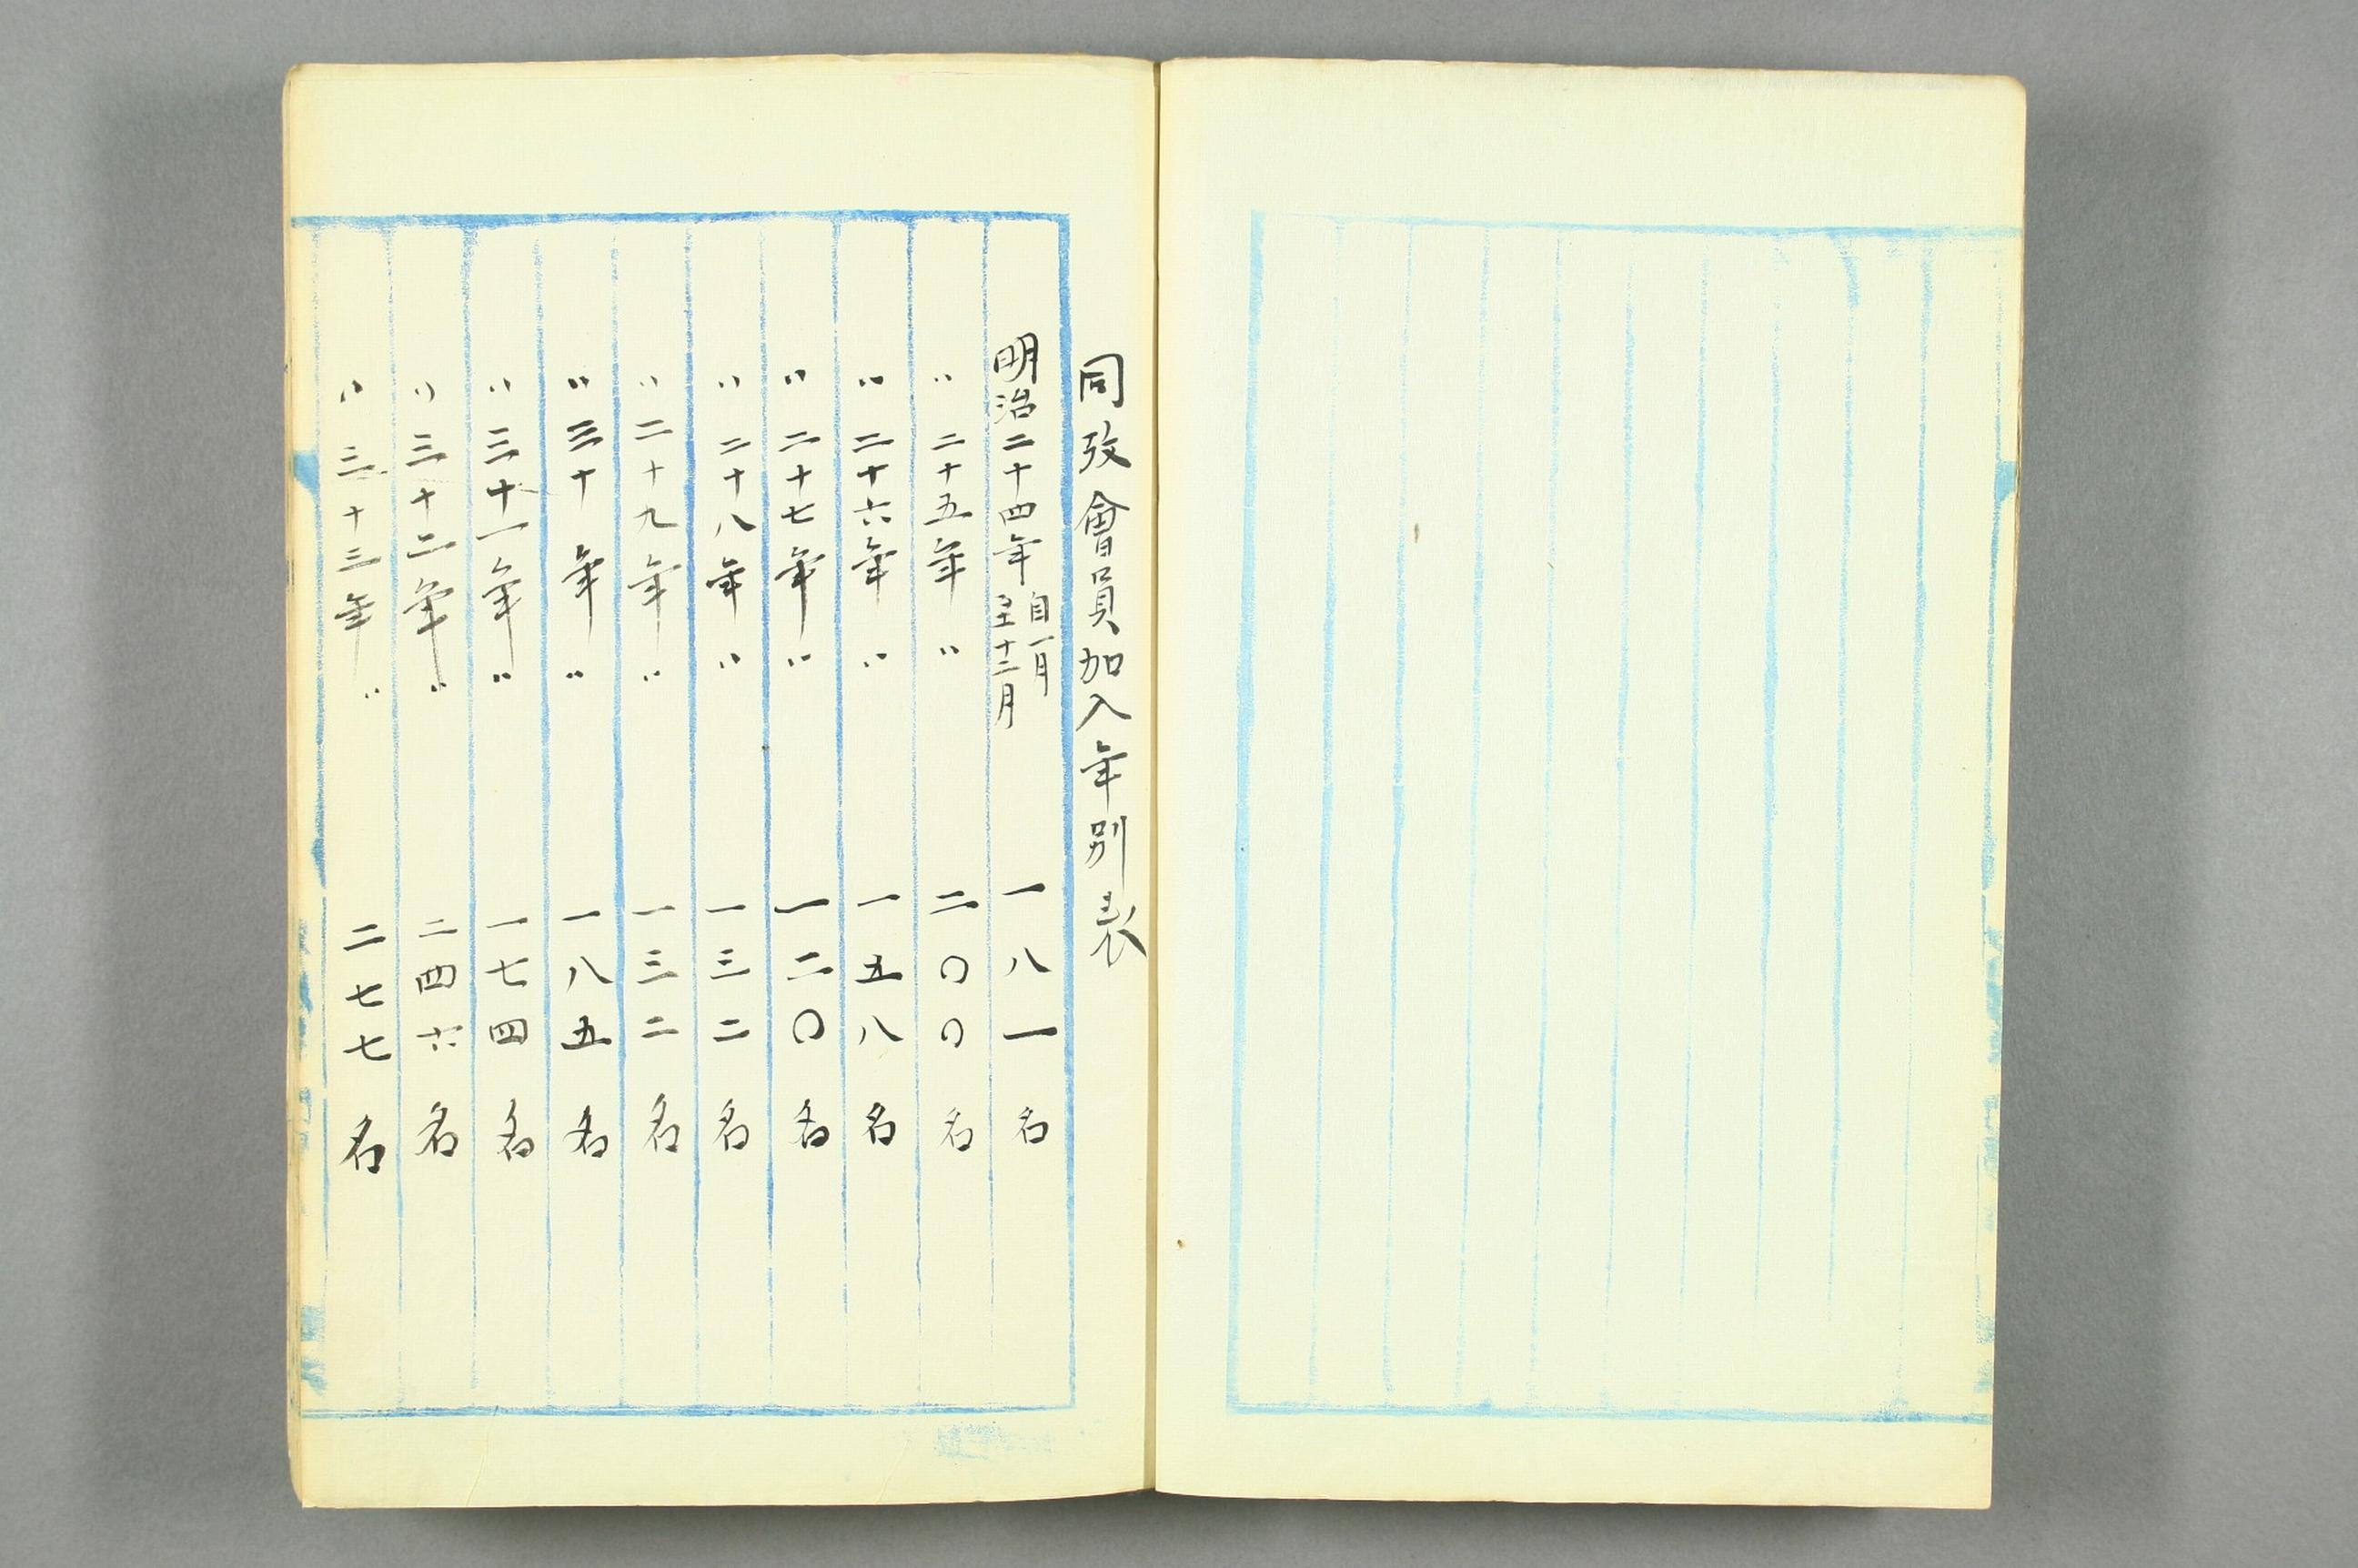 同攻會員加入年別表
明治二十四年自一月至十二月 一八一名
〃二十五年〃 二〇〇名
〃二十六年〃 一五八名
〃二十七年〃 一二〇名
〃二十八年〃 一三二名
〃二十九年〃 一三二名
〃三十年〃 一八五名
〃三十一年〃 一七四名
〃三十二年〃 二四六名
〃三十三年〃 二七七名